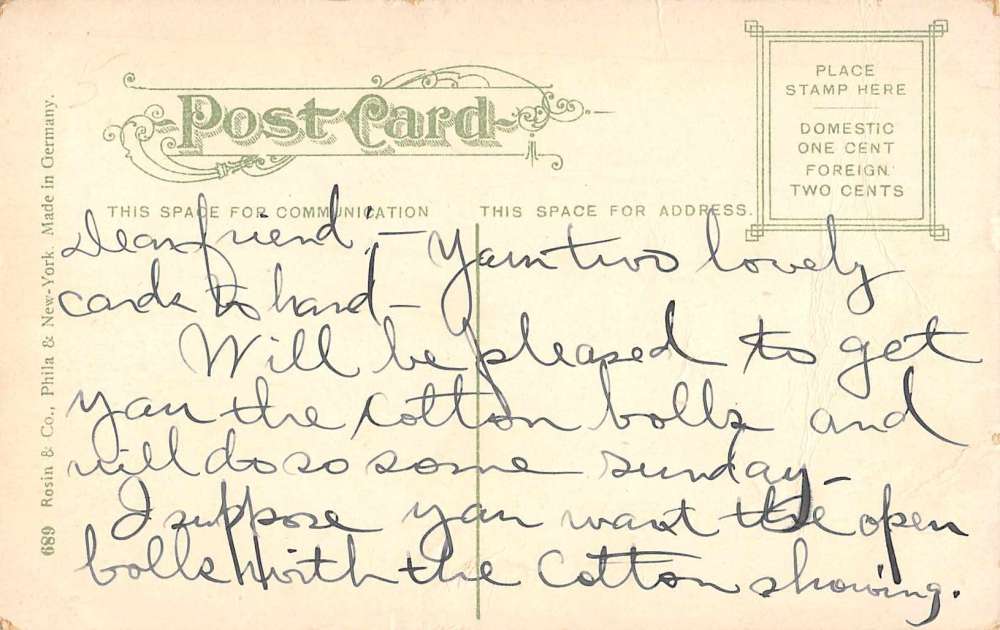 Post Card
PLACE
STAMP HERE
DOMESTIC
ONE CENT
FOREIGN
TWO CENTS
THIS SPACE FOR COMMUNICATION
THIS SPACE FOR ADDRESS.
689 Rosin & Co., Phila & New-York. Made in Germany.
Dear friend; - Your two lovely
cards to hand -
Will be pleased to get
you the cotton bolls and
will do so some sunday -
I suppose you want the open
bolls with the Cotton showing.